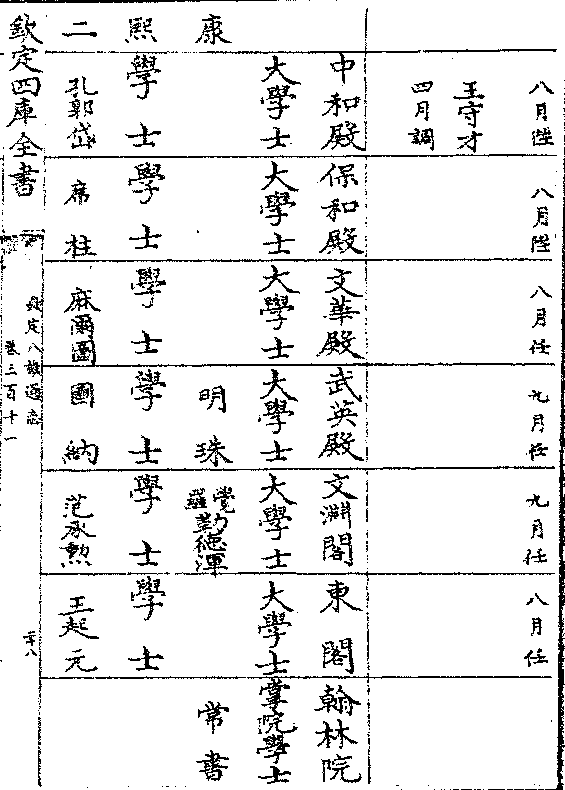 八月陞 八月陞 八月任 九月任 九月任 八月任
王守才
四月調
中和殿 保和殿 文華殿 武英殿 文淵閣 東閣 翰林院
大學士 大學士 大學士 大學士 大學士 大學士 掌院學士
康 明珠 覺羅勒德渾 常書
熙 學士 學士 學士 學士 學士 學士
二 孔郭岱 席柱 麻爾圖 圖納 范承勲 王起元
欽定八旗通志
卷三百十一
欽定四庫全書